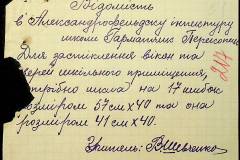 Відомість
в Александрофельдську інспектуру
школи Гарматних Переконець
Для застіклення вікон та
дверей шкільного приміщення,
потрібно шкла на 17 шибок
розміром 57см х 40 та она
розміром 41 см х 40.
Учитель: В. Шевченко